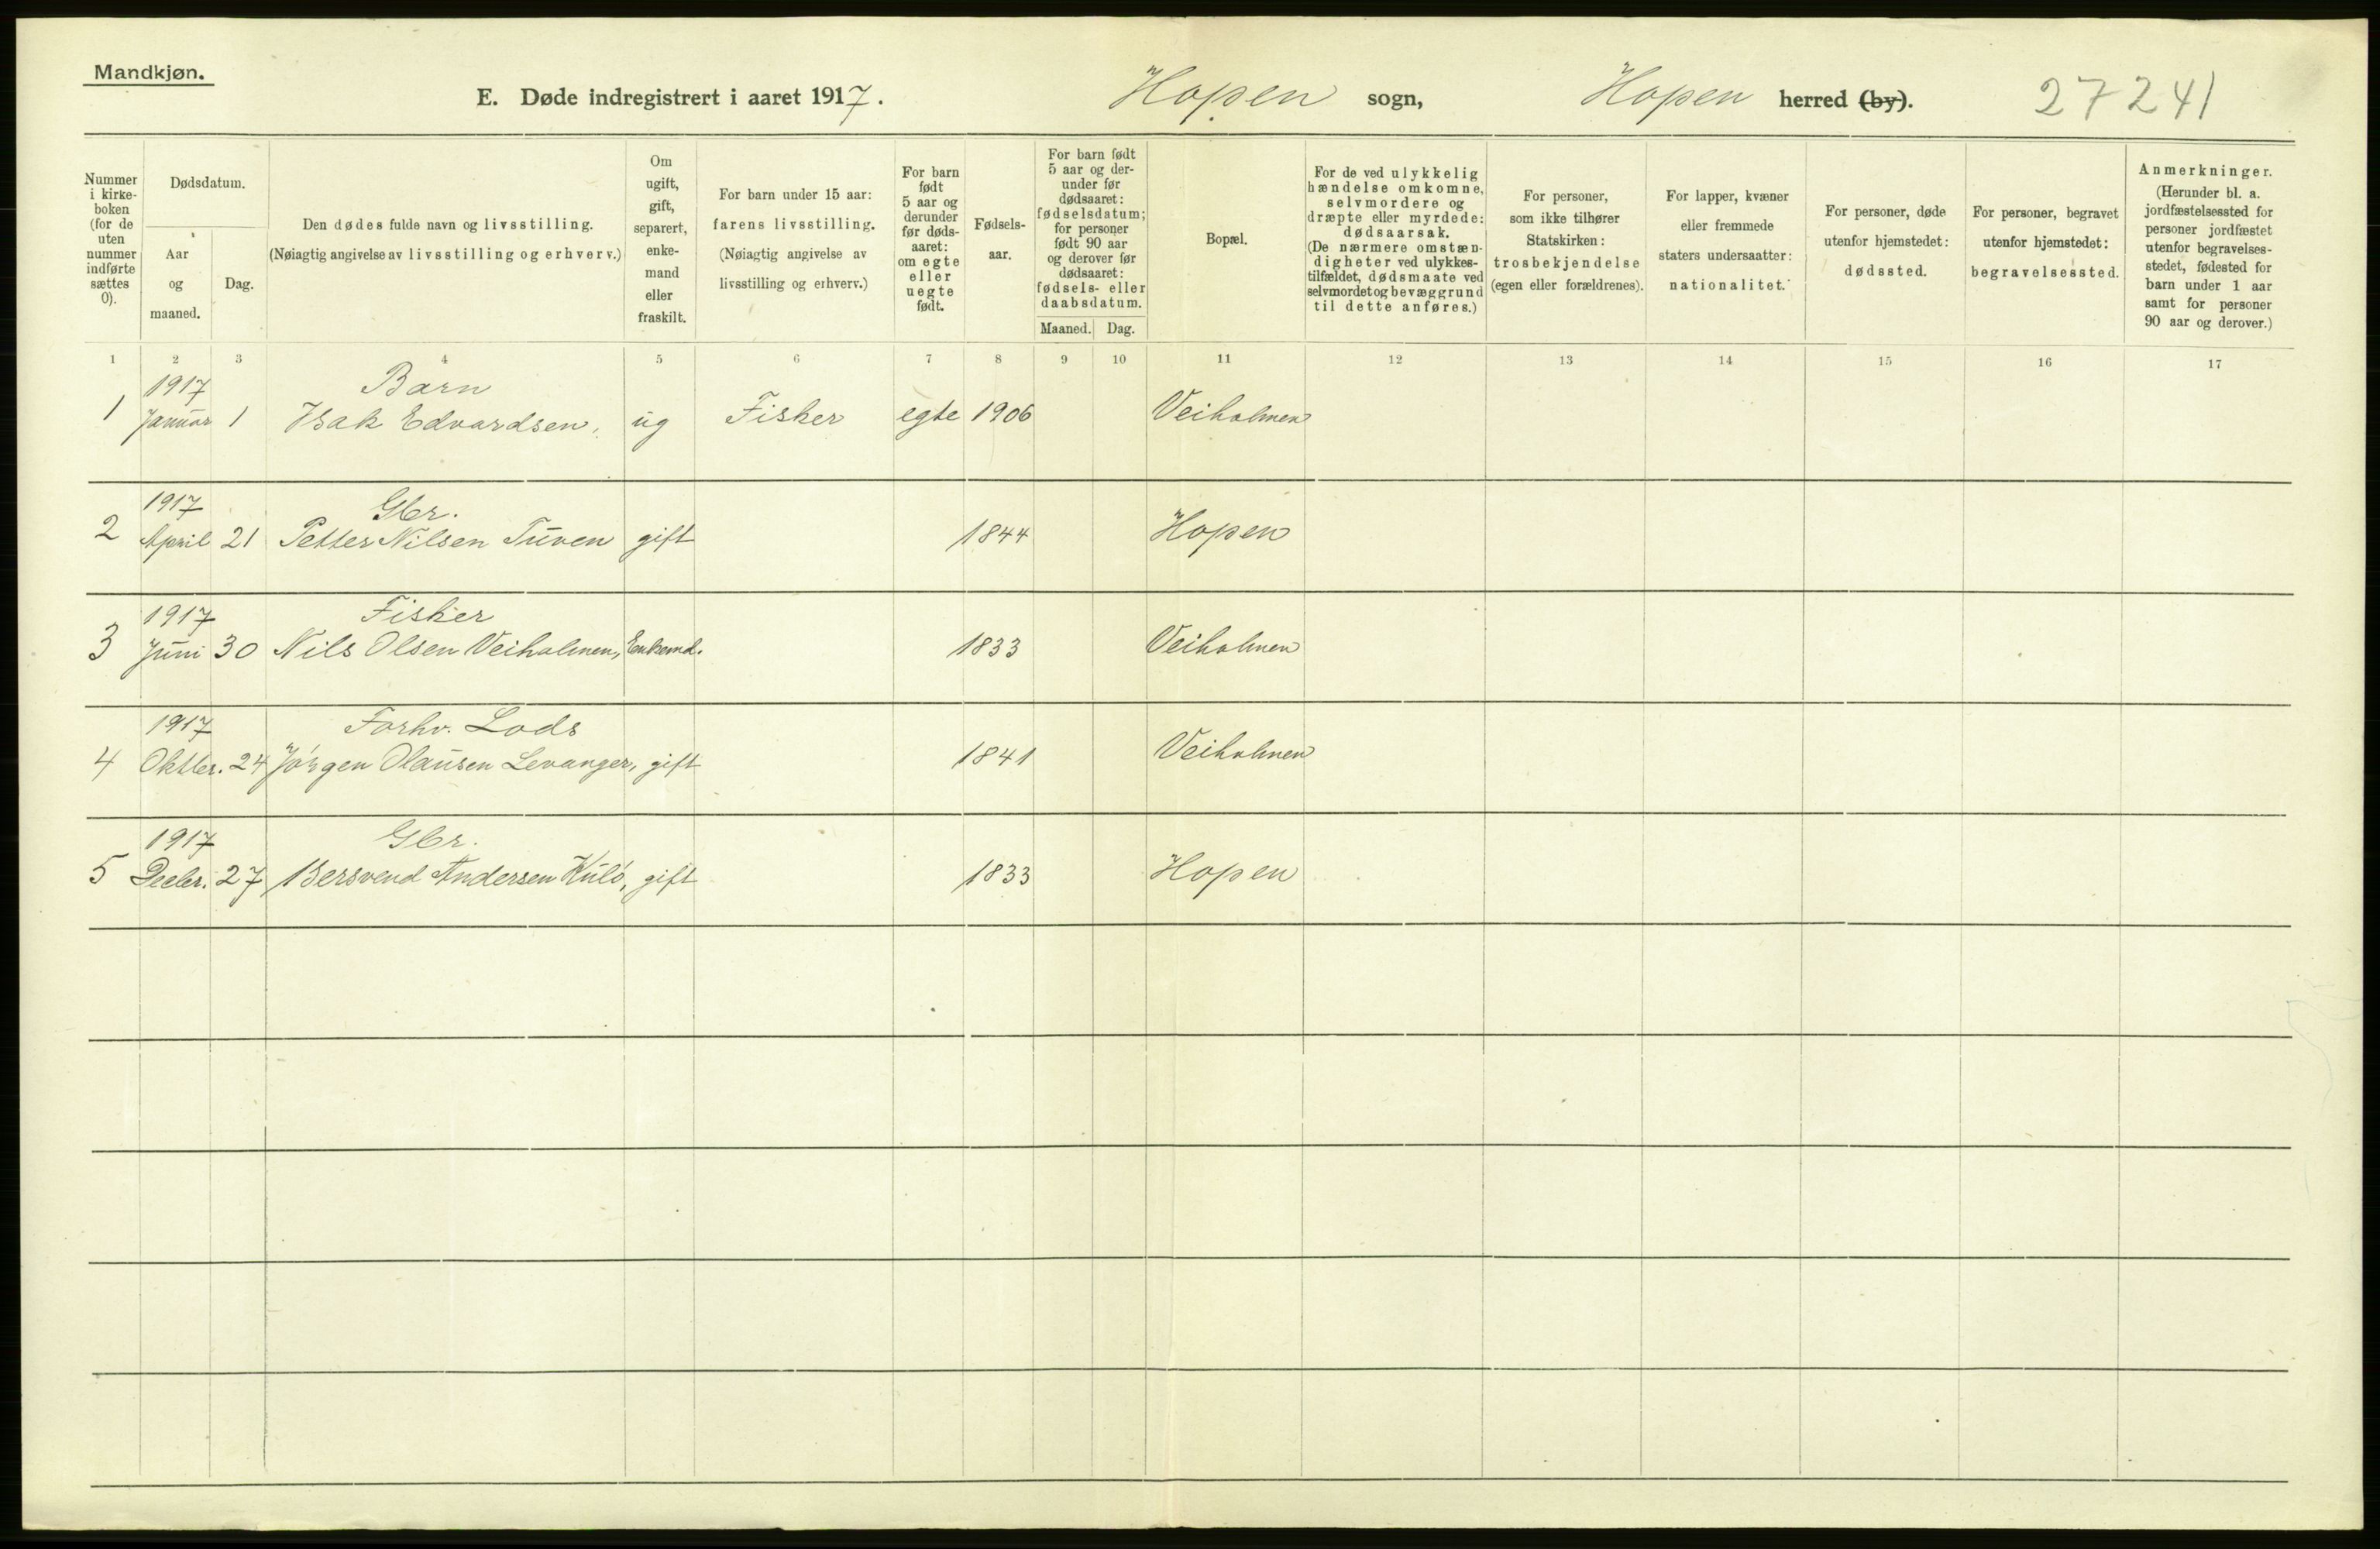 Mandkjøn.
E. Døde indregistrert i aaret 1917. Hopen sogn, Hopen herred (by). 27241
Nummer i kirke-boken (for de uten nummer indførte sættes 0).
Dødsdatum.
Aar og maaned.
Dag.
Den dødes fulde navn og livsstilling.
(Nøiagtig angivelse av livsstilling og erhverv.)
Om ugift, gift, separert, enke-mand eller fraskilt.
For barn under 15 aar: farens livsstilling.
(Nøiagtig angivelse av livsstilling og erhverv.)
For barn født 5 aar og derunder før døds-aaret: om egte eller uegte født.
Fødsels-aar.
For barn født 5 aar og der-under før dødsaaret: fødselsdatum; for personer født 90 aar og derover før dødsaaret: fødsels- eller daabsdatum.
Maaned. Dag.
Bopæl.
For de ved ulykkelig hændelse omkomne, selvmordere og dræpte eller myrdede: dødsaarsak.
(De nærmere omstæn-digheter ved ulykkes-tilfældet, dødsmaate ved selvmordet og bevæggrund til dette anføres.)
For personer, som ikke tilhører Statskirken: trosbekjendelse (egen eller forældrenes).
For lapper, kvæner eller fremmede staters undersaatter: nationalitet.
For personer, døde utenfor hjemstedet: dødssted.
For personer, begravet utenfor hjemstedet: begravelsessted.
Anmerkninger.
(Herunder bl. a. jordfæstelsessted for personer jordfæstet utenfor begravelses-stedet, fødested for barn under 1 aar samt for personer 90 aar og derover.)
1 2 3 4 5 6 7 8 9 10 11 12 13 14 15 16 17
1917 Barn
1 Januar 1 Isak Edvardsen, ug Fisker egte 1906 Veiholmen
1917 Gbr.
2 April 21 Petter Nilsen Tuven gift 1844 Hopen
1917 Fisker
3 Juni 30 Nils Olsen Veiholmen, Enkemd. 1833 Veiholmen
1917 Forhv. Lods
4 Oktbr. 24 Jörgen Olausen Levanger, gift 1841 Veiholmen
1917 Gbr.
5 Decbr. 27 Bersvend Andersen Kulö, gift 1833 Hopen